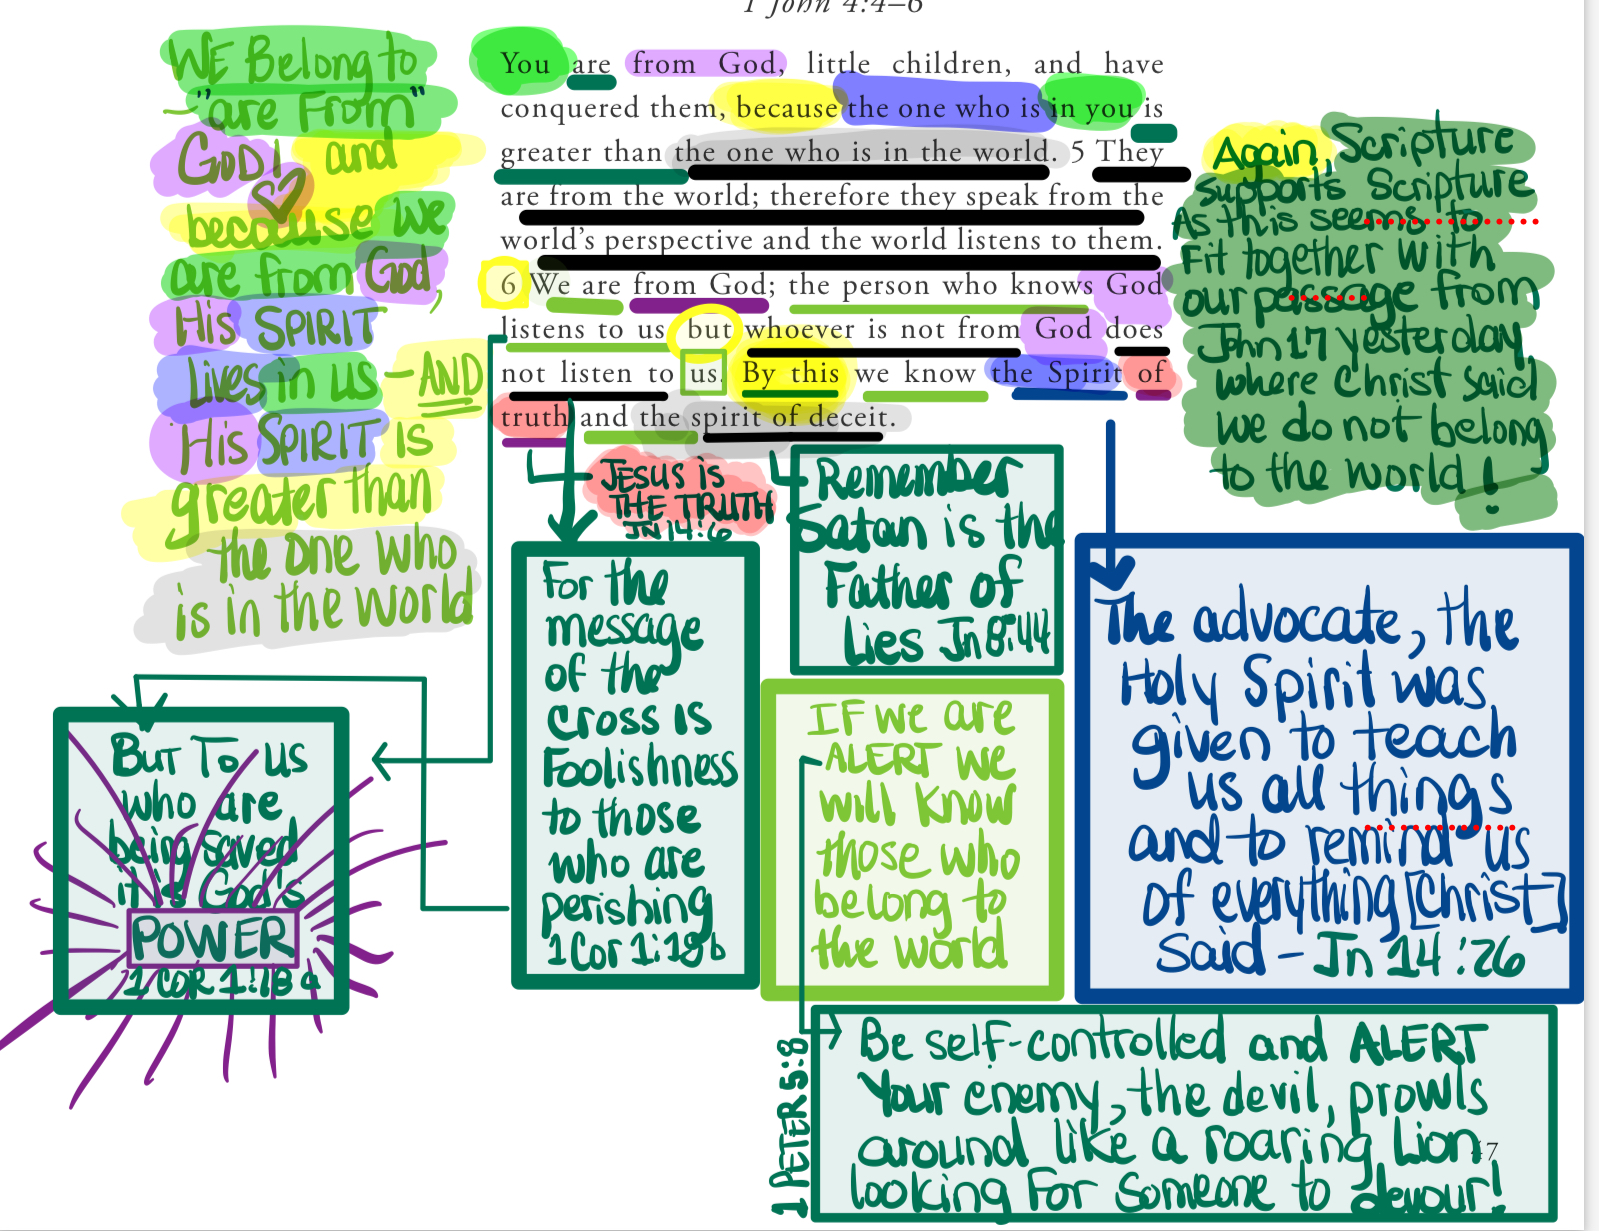 1 John 4:4–6
You are from God, little children, and have
conquered them, because the one who is in you is
greater than the one who is in the world. 5 They
are from the world; therefore they speak from the
world’s perspective and the world listens to them.
6 We are from God; the person who knows God
listens to us, but whoever is not from God does
not listen to us. By this we know the Spirit of
truth and the spirit of deceit.
WE Belong to
–"are From"
GOD! and
because we
are from God,
His SPIRIT
Lives in us – AND
His SPIRIT IS
greater than
the one who
is in the world
Again, Scripture
supports Scripture
As this seems to
Fit together with
our passage from
John 17 yesterday
where Christ said
we do not belong
to the world!
JESUS is
THE TRUTH
JN 14:6
Remember
Satan is the
Father of
Lies Jn 8:44
For the
message
of the
cross is
Foolishness
to those
who are
perishing
1 Cor 1:18b
But To us
who are
being saved
it is God's
POWER
1 COR 1:18a
IF we are
ALERT we
will know
those who
belong to
the world
The advocate, the
Holy Spirit was
given to teach
us all things
and to remind us
of everything [Christ]
said – Jn 14:26
1 PETER 5:8
Be self-controlled and ALERT
Your enemy, the devil, prowls
around like a roaring Lion
looking For someone to devour!
47